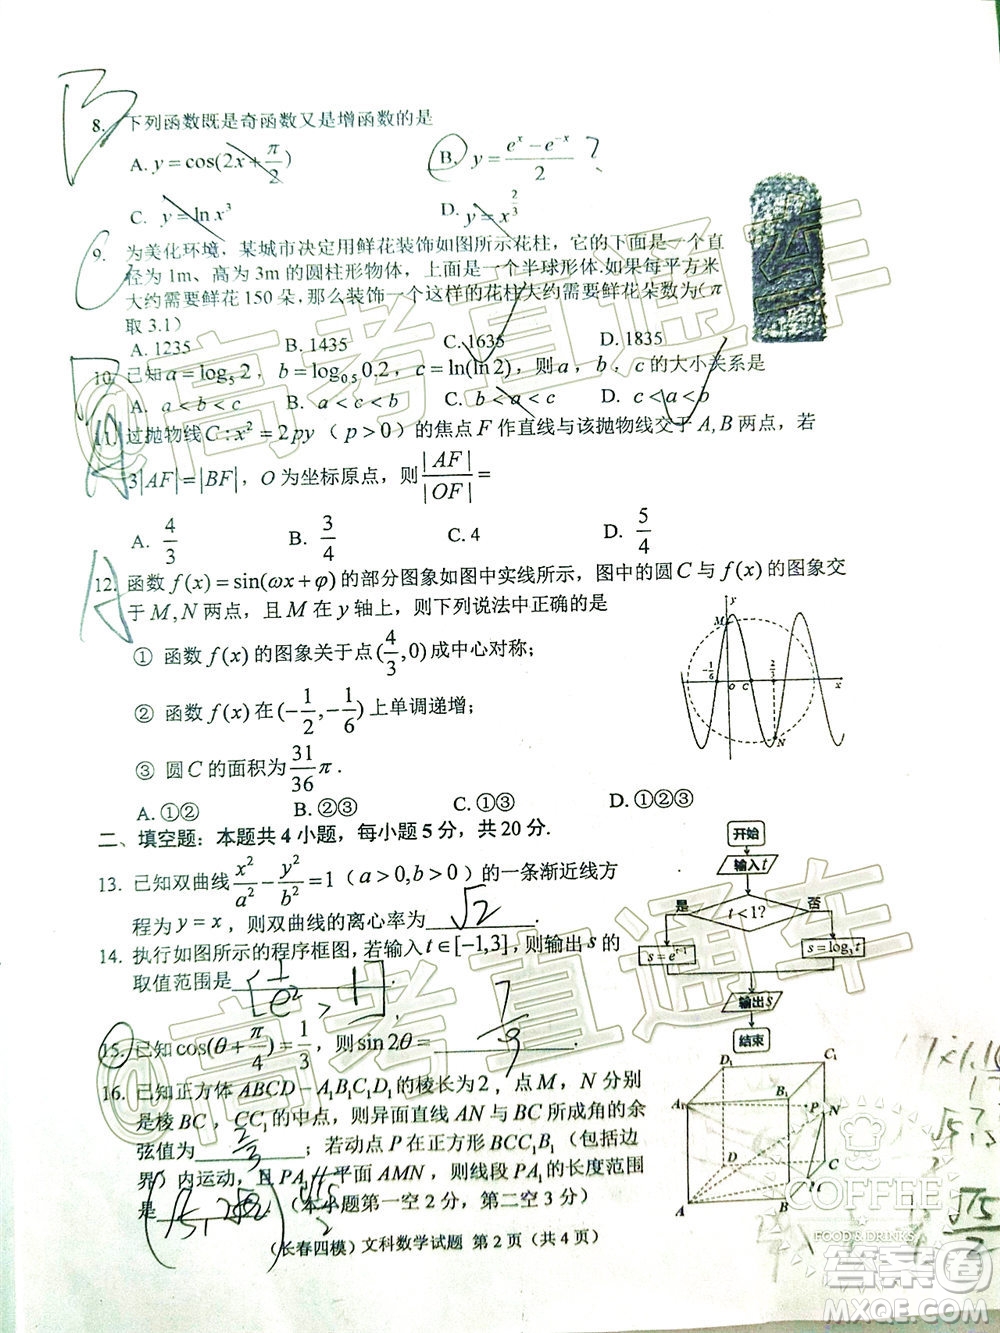 B
8. 下列函数既是奇函数又是增函数的是
A. y=cos(2x+π/2) B. y=(e^x-e^-x)/2 ?
C. y=ln x³ D. y=x^(2/3)
C
9. 为美化环境，某城市决定用鲜花装饰如图所示花柱，它的下面是一个直
径为1m、高为3m的圆柱形物体，上面是一个半球形体.如果每平方米
大约需要鲜花150朵,那么装饰一个这样的花柱大约需要鲜花朵数为(π
取3.1)
A. 1235 B. 1435 C. 1635 D. 1835
B
10. 已知a=log₅2，b=log₀.₅0.2，c=ln(ln2)，则a，b，c的大小关系是
A. a<b<c B. a<c<b C. b<a<c D. c<a<b
A
11. 过抛物线C:x²=2py（p>0）的焦点F作直线与该抛物线交于A,B两点，若
3|AF|=|BF|，O为坐标原点，则|AF|/|OF|=
A. 4/3 B. 3/4 C. 4 D. 5/4
A
12. 函数f(x)=sin(ωx+φ)的部分图象如图中实线所示，图中的圆C与f(x)的图象交
于M,N两点，且M在y轴上，则下列说法中正确的是
① 函数f(x)的图象关于点(4/3,0)成中心对称;
② 函数f(x)在(-1/2,-1/6)上单调递增;
③ 圆C的面积为31/36π.
A. ①② B. ②③ C. ①③ D. ①②③
y
M
-1/6 O C 2/3 x
N
二、填空题：本题共4小题，每小题5分，共20分.
13. 已知双曲线x²/a²-y²/b²=1（a>0,b>0）的一条渐近线方
程为y=x，则双曲线的离心率为 √2 .
14. 执行如图所示的程序框图,若输入t∈[-1,3],则输出s的
取值范围是 [1/e², 1] .
15. 已知cos(θ+π/4)=1/3，则sin2θ= 7/9 .
16. 已知正方体ABCD-A₁B₁C₁D₁的棱长为2，点M，N分别
是棱BC，CC₁的中点，则异面直线AN与BC所成角的余
弦值为 2/3 ；若动点P在正方形BCC₁B₁（包括边
界）内运动，且PA₁∥平面AMN，则线段PA₁的长度范围
是 .（本小题第一空2分，第二空3分）
开始
输入t
是 t<1? 否
s=e^(t-1) s=log₃t
输出s
结束
D₁ C₁
A₁ B₁ P N
D C
A B
（长春四模）文科数学试题 第2页（共4页）
@高考直通车
@高考直通车
COFFEE
FOOD & DRINKS
答案圈
MXQE.COM